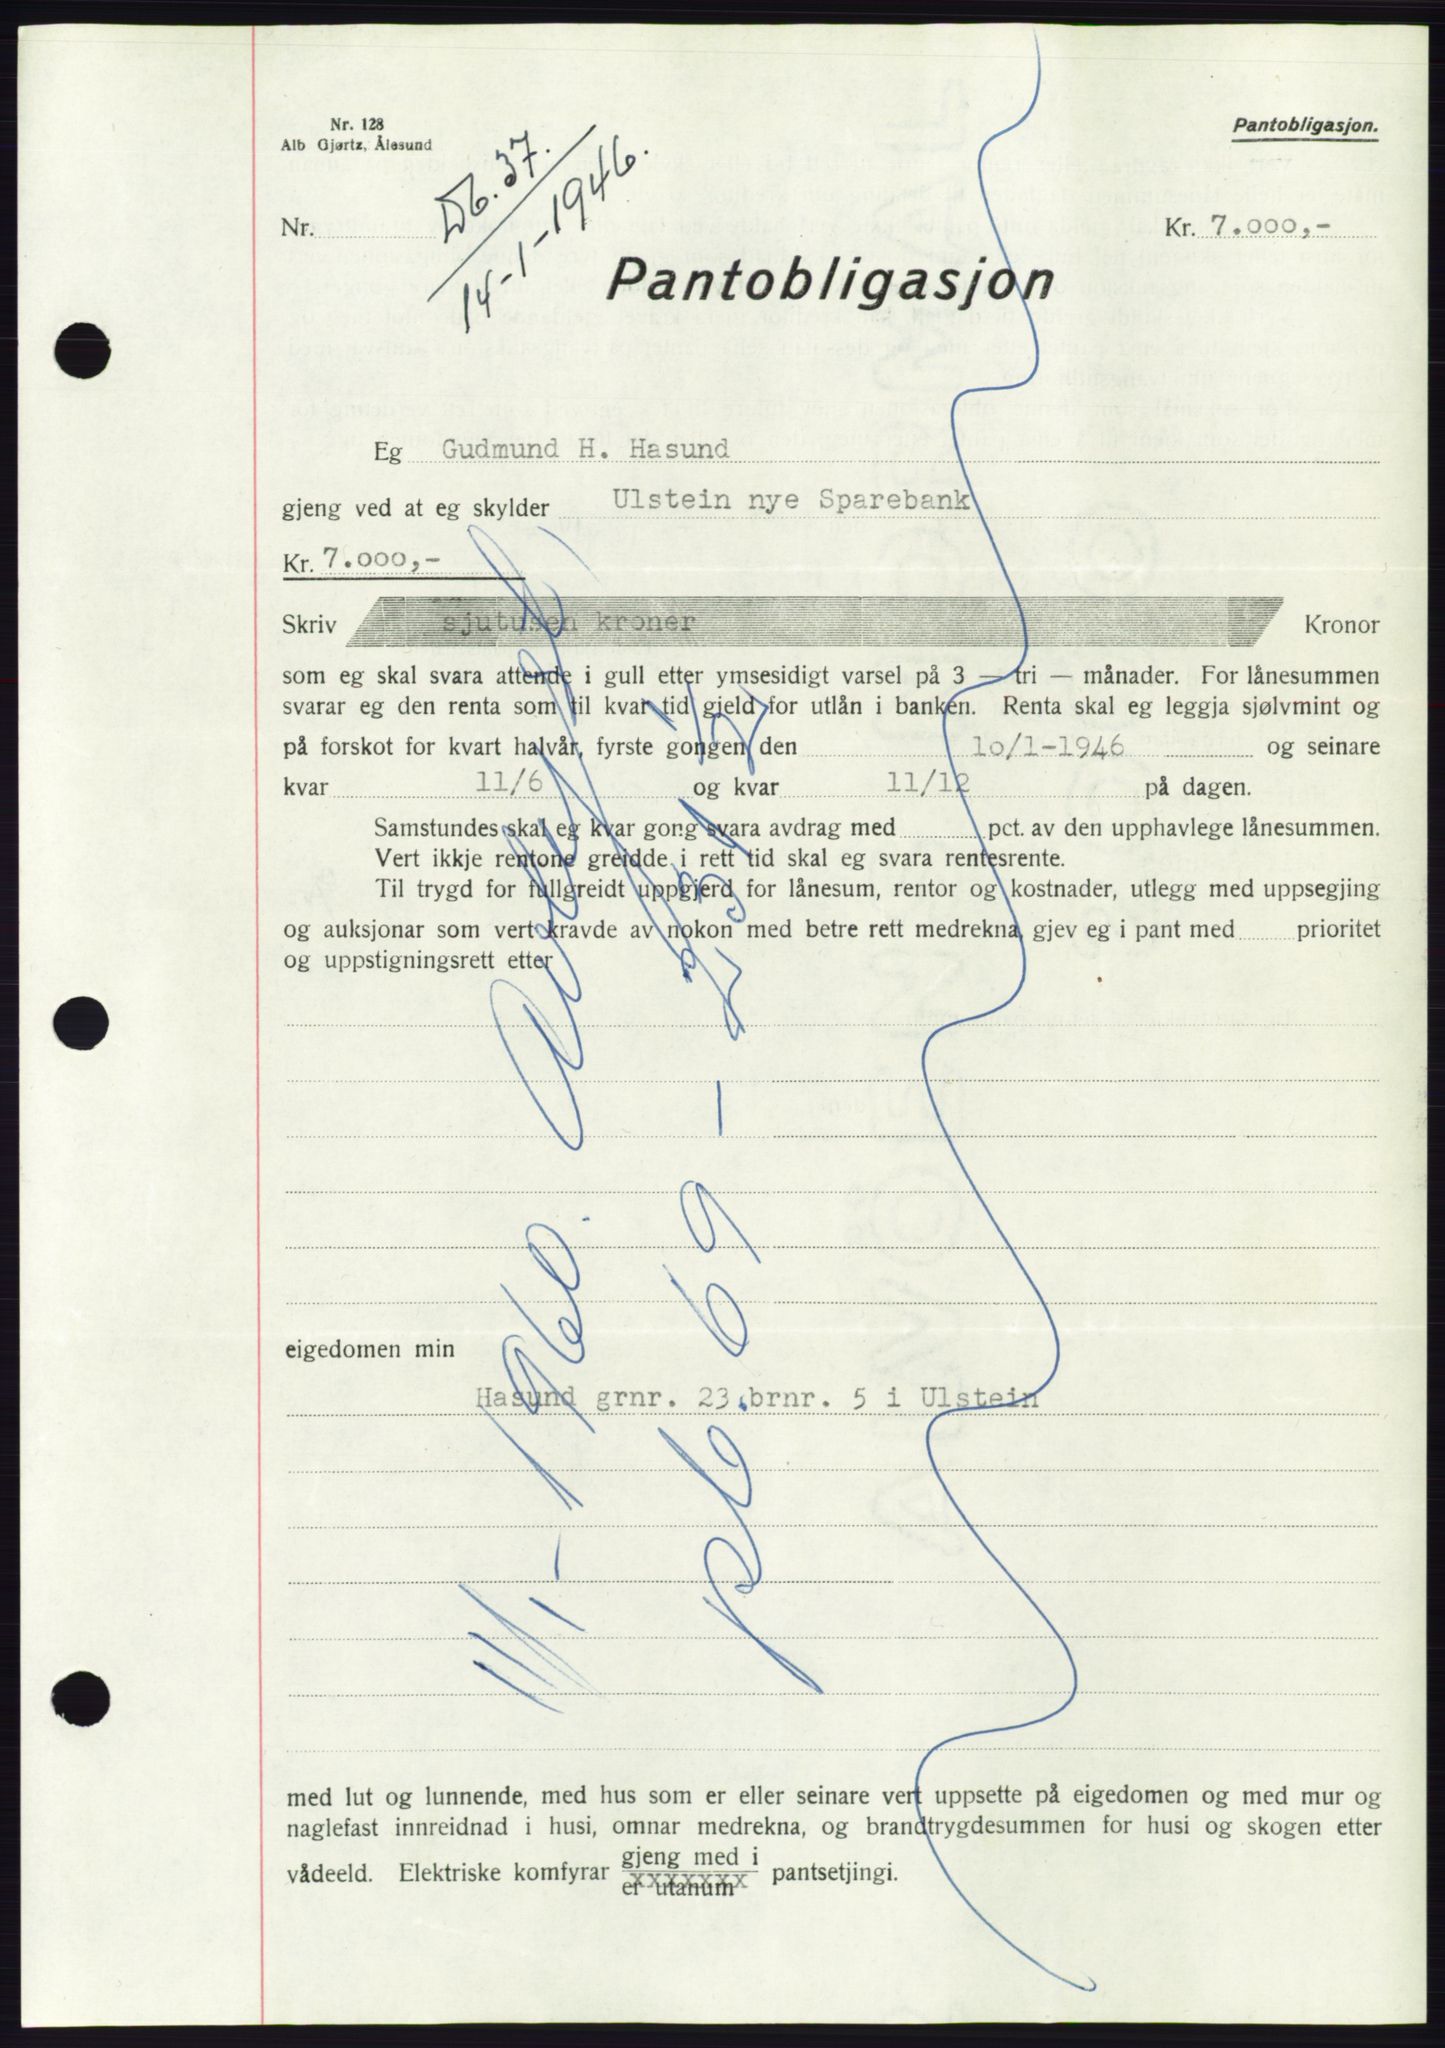 Nr. 128
Alb Gjørtz, Ålesund
Pantobligasjon.
Db. 37.
14-1-1946.
Nr.
Kr. 7.000,-
Pantobligasjon
Eg Gudmund H. Hasund
gjeng ved at eg skylder Ulstein nye Sparebank
Kr. 7.000,-
Skriv sjutusen kroner Kronor
som eg skal svara attende i gull etter ymsesidigt varsel på 3 — tri — månader. For lånesummen
svarar eg den renta som til kvar tid gjeld for utlån i banken. Renta skal eg leggja sjølvmint og
på forskot for kvart halvår, fyrste gongen den 10/1-1946 og seinare
kvar 11/6 og kvar 11/12 på dagen.
Samstundes skal eg kvar gong svara avdrag med pct. av den upphavlege lånesummen.
Vert ikkje rentone greidde i rett tid skal eg svara rentesrente.
Til trygd for fullgreidt uppgjerd for lånesum, rentor og kostnader, utlegg med uppsegjing
og auksjonar som vert kravde av nokon med betre rett medrekna, gjev eg i pant med prioritet
og uppstigningsrett etter
eigedomen min
Hasund grnr. 23 brnr. 5 i Ulstein
med lut og lunnende, med hus som er eller seinare vert uppsette på eigedomen og med mur og
naglefast innreidnad i husi, omnar medrekna, og brandtrygdesummen for husi og skogen etter
vådeeld. Elektriske komfyrar gjeng med i pantsetjingi.
xxxxxxx
er utanum
11/1-1960. Avlyst